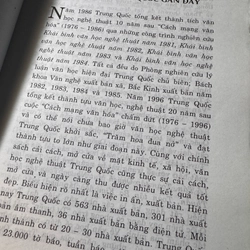 QUỐC GẦN ĐÂY
Năm 1986 Trung Quốc tổng kết thành tích văn
học nghệ thuật 10 năm sau "Cách mạng văn
(1976 - 1986) qua những công trình nghiên cứu
Khái bình văn học nghệ thuật năm 1981, Khái bình
văn học nghệ thuật năm 1982, Khái bình
học nghệ thuật năm 1983, Khái bình văn
năm 1984. Tất cả đều do Phòng nghiên cứu lý
luận văn học hiện đại Trung Quốc chủ biên; Bách
khoa Văn nghệ xuất xã, Bắc Kinh xuất bản các năm
82, 83, 84, 85. Năm 1996 Trung Quốc
tổng kết thành tựu văn học, nghệ thuật 20 năm sau
cuộc "Cách mạng văn hóa" chấm dứt (1976 - 1996)
và có thể nói chưa bao giờ văn học nghệ thuật
Trung Quốc khởi sắc, "Trăm hoa đua nở" và đạt
thành tựu to lớn như giai đoạn này. Cùng với chính
sách cải cách, mở cửa về mặt kinh tế, xã hội, văn
học nghệ thuật Trung Quốc cũng thực sự cải cách,
mở cửa và ngày càng thu được nhiều kết quả tốt
đẹp. Biểu hiện rõ nhất là việc in ấn, xuất bản. Hiện
nay Trung Quốc có 563 nhà xuất bản, 301 nhà xuất
bản âm thanh, 36 nhà xuất bản bằng điện tử. Mỗi
có từ 20 - 30 nhà xuất bản. Trung
23.000 tờ báo, tuần báo,